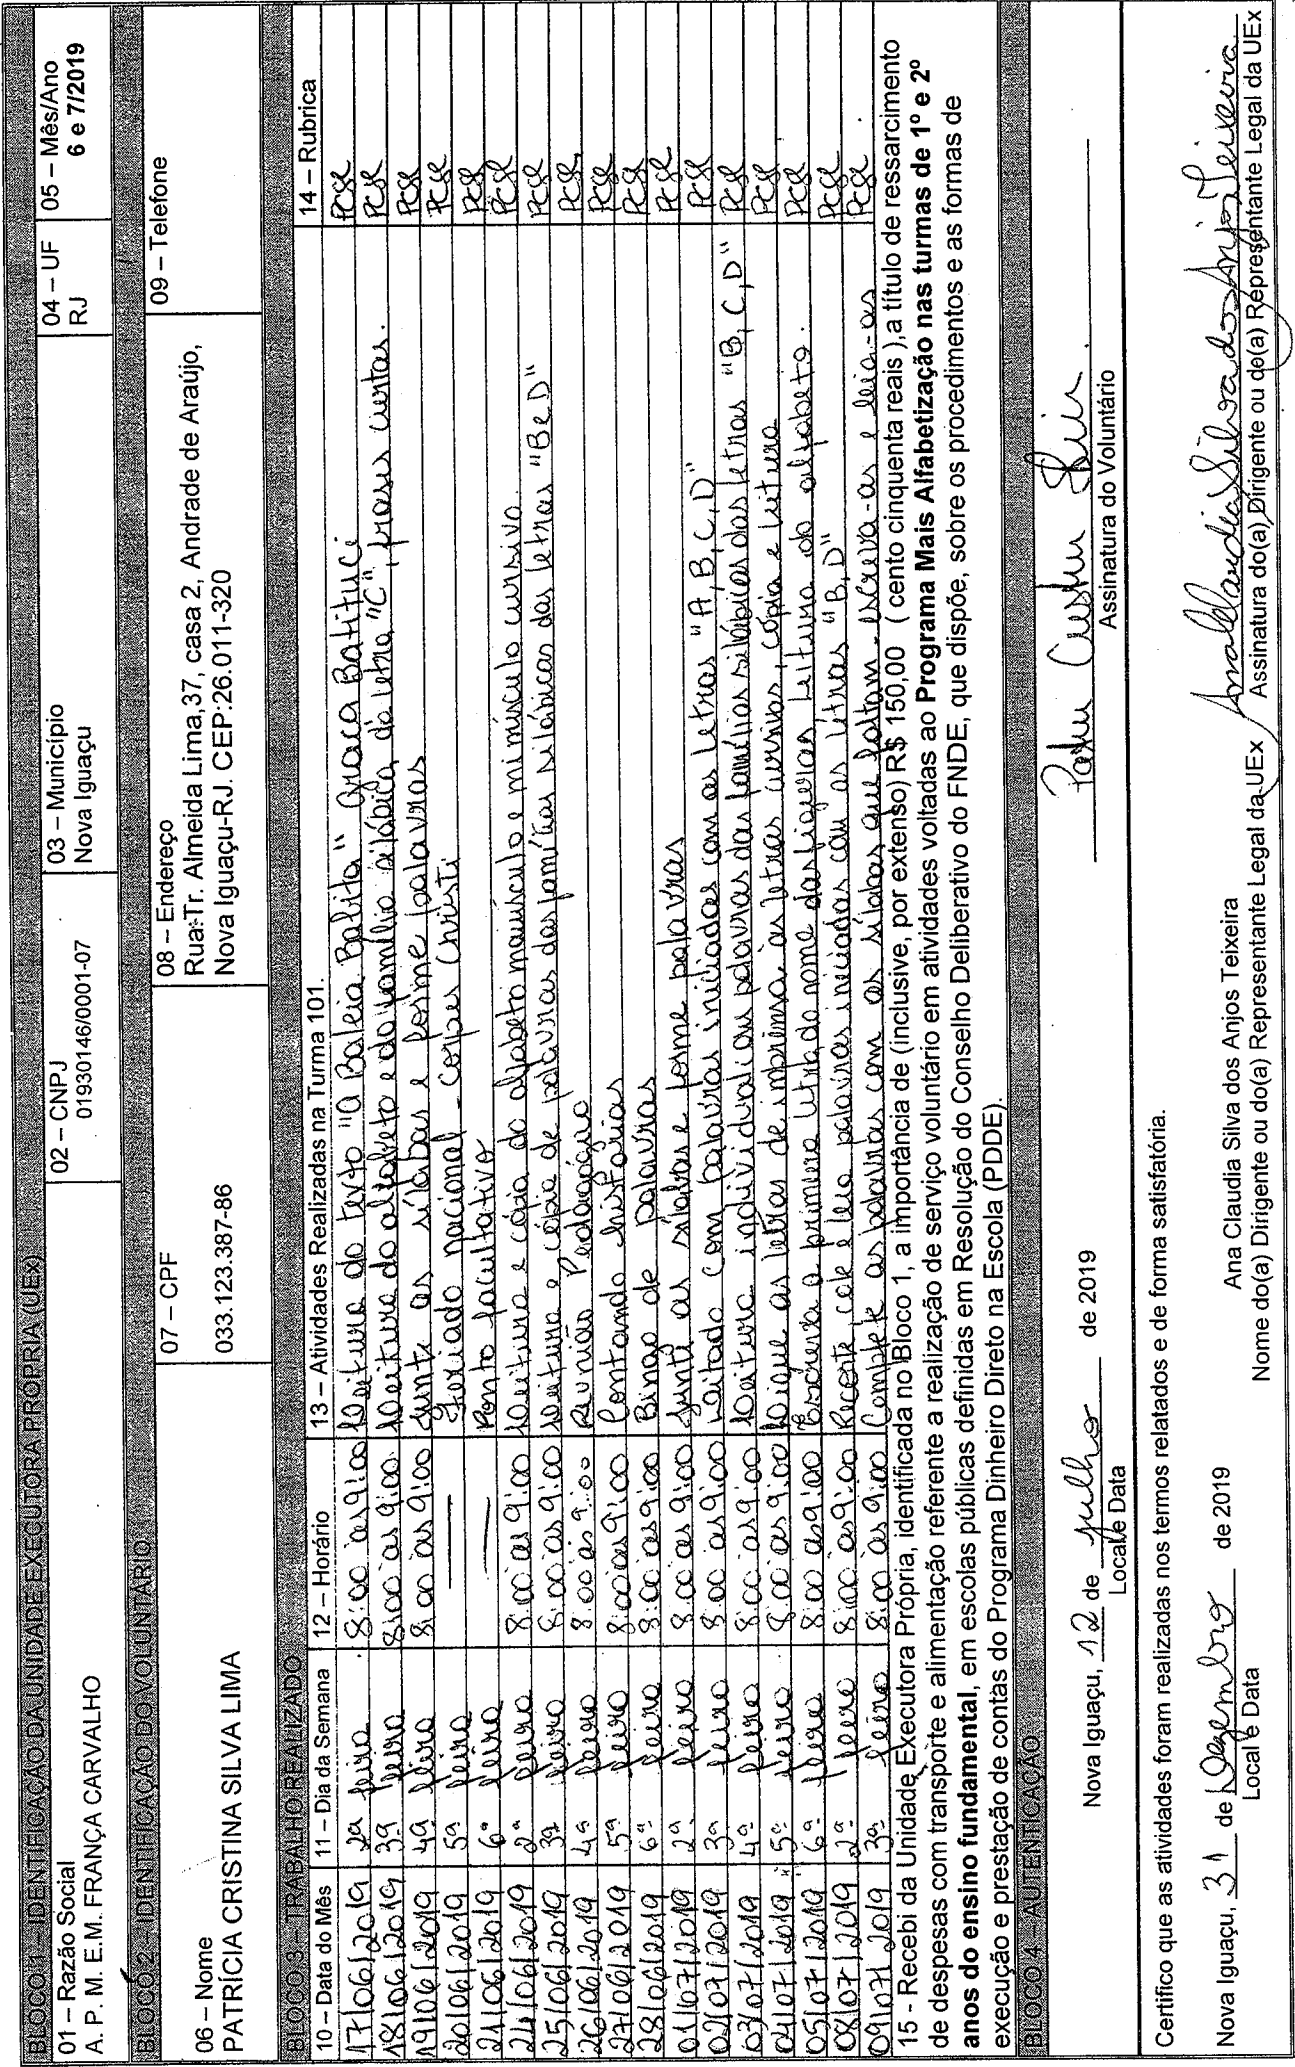 BLOCO 1 – IDENTIFICAÇÃO DA UNIDADE EXECUTORA PRÓPRIA (UEx)
01 – Razão Social
A. P. M. E.M. FRANÇA CARVALHO
02 – CNPJ
01930146/0001-07
03 – Município
Nova Iguaçu
04 – UF
RJ
05 – Mês/Ano
6 e 7/2019
BLOCO 2 – IDENTIFICAÇÃO DO VOLUNTÁRIO
06 – Nome
PATRÍCIA CRISTINA SILVA LIMA
07 – CPF
033.123.387-86
08 – Endereço
Rua:Tr. Almeida Lima,37, casa 2, Andrade de Araújo,
Nova Iguaçu-RJ. CEP:26.011-320
09 – Telefone
BLOCO 3 – TRABALHO REALIZADO
10 – Data do Mês 11 – Dia da Semana 12 – Horário 13 – Atividades Realizadas na Turma 101. 14 – Rubrica
17/06/2019 2ª feira 8:00 às 9:00 Leitura do texto "A Baleia Balita" Graça Batituci PCSL
18/06/2019 3ª feira 8:00 às 9:00 Leitura do alfabeto e da família silábica da letra "C", frases curtas. PCSL
19/06/2019 4ª feira 8:00 às 9:00 Junte as sílabas e forme palavras PCSL
20/06/2019 5ª feira — Feriado nacional - corpus Christi PCSL
21/06/2019 6ª feira — Ponto facultativo PCSL
24/06/2019 2ª feira 8:00 às 9:00 Leitura e cópia do alfabeto maiúsculo e minúsculo cursivo. PCSL
25/06/2019 3ª feira 8:00 às 9:00 Leitura e cópia de palavras das famílias silábicas das letras "B e D" PCSL
26/06/2019 4ª feira 8:00 às 9:00 Reunião Pedagógica PCSL
27/06/2019 5ª feira 8:00 às 9:00 Contando histórias PCSL
28/06/2019 6ª feira 8:00 às 9:00 Bingo de palavras PCSL
01/07/2019 2ª feira 8:00 às 9:00 Junte as sílabas e forme palavras PCSL
02/07/2019 3ª feira 8:00 às 9:00 Ditado com palavras iniciadas com as letras "A, B, C, D" PCSL
03/07/2019 4ª feira 8:00 às 9:00 Leitura individual ou palavras das famílias silábicas das letras "B, C, D" PCSL
04/07/2019 5ª feira 8:00 às 9:00 Ligue as letras de imprensa, às letras cursivas, cópia e leitura PCSL
05/07/2019 6ª feira 8:00 às 9:00 Escreva a primeira letra do nome das figuras, leitura do alfabeto. PCSL
08/07/2019 2ª feira 8:00 às 9:00 Recorte, cole e leia palavras iniciadas com as letras "B, D" PCSL
09/07/2019 3ª feira 8:00 às 9:00 Complete as palavras com as sílabas que faltam - escreva-as e leia-as PCSL
15 - Recebi da Unidade Executora Própria, identificada no Bloco 1, a importância de (inclusive, por extenso) R$ 150,00 ( cento cinquenta reais ),a título de ressarcimento
de despesas com transporte e alimentação referente a realização de serviço voluntário em atividades voltadas ao Programa Mais Alfabetização nas turmas de 1º e 2º
anos do ensino fundamental, em escolas públicas definidas em Resolução do Conselho Deliberativo do FNDE, que dispõe, sobre os procedimentos e as formas de
execução e prestação de contas do Programa Dinheiro Direto na Escola (PDDE).
BLOCO 4 – AUTENTICAÇÃO
Nova Iguaçu, 12 de julho de 2019
Local e Data
Assinatura do Voluntário
Certifico que as atividades foram realizadas nos termos relatados e de forma satisfatória.
Nova Iguaçu, 31 de Dezembro de 2019
Local e Data
Ana Claudia Silva dos Anjos Teixeira
Nome do(a) Dirigente ou do(a) Representante Legal da UEx
Ana Claudia Silva dos Anjos Teixeira
Assinatura do(a) Dirigente ou do(a) Representante Legal da UEx